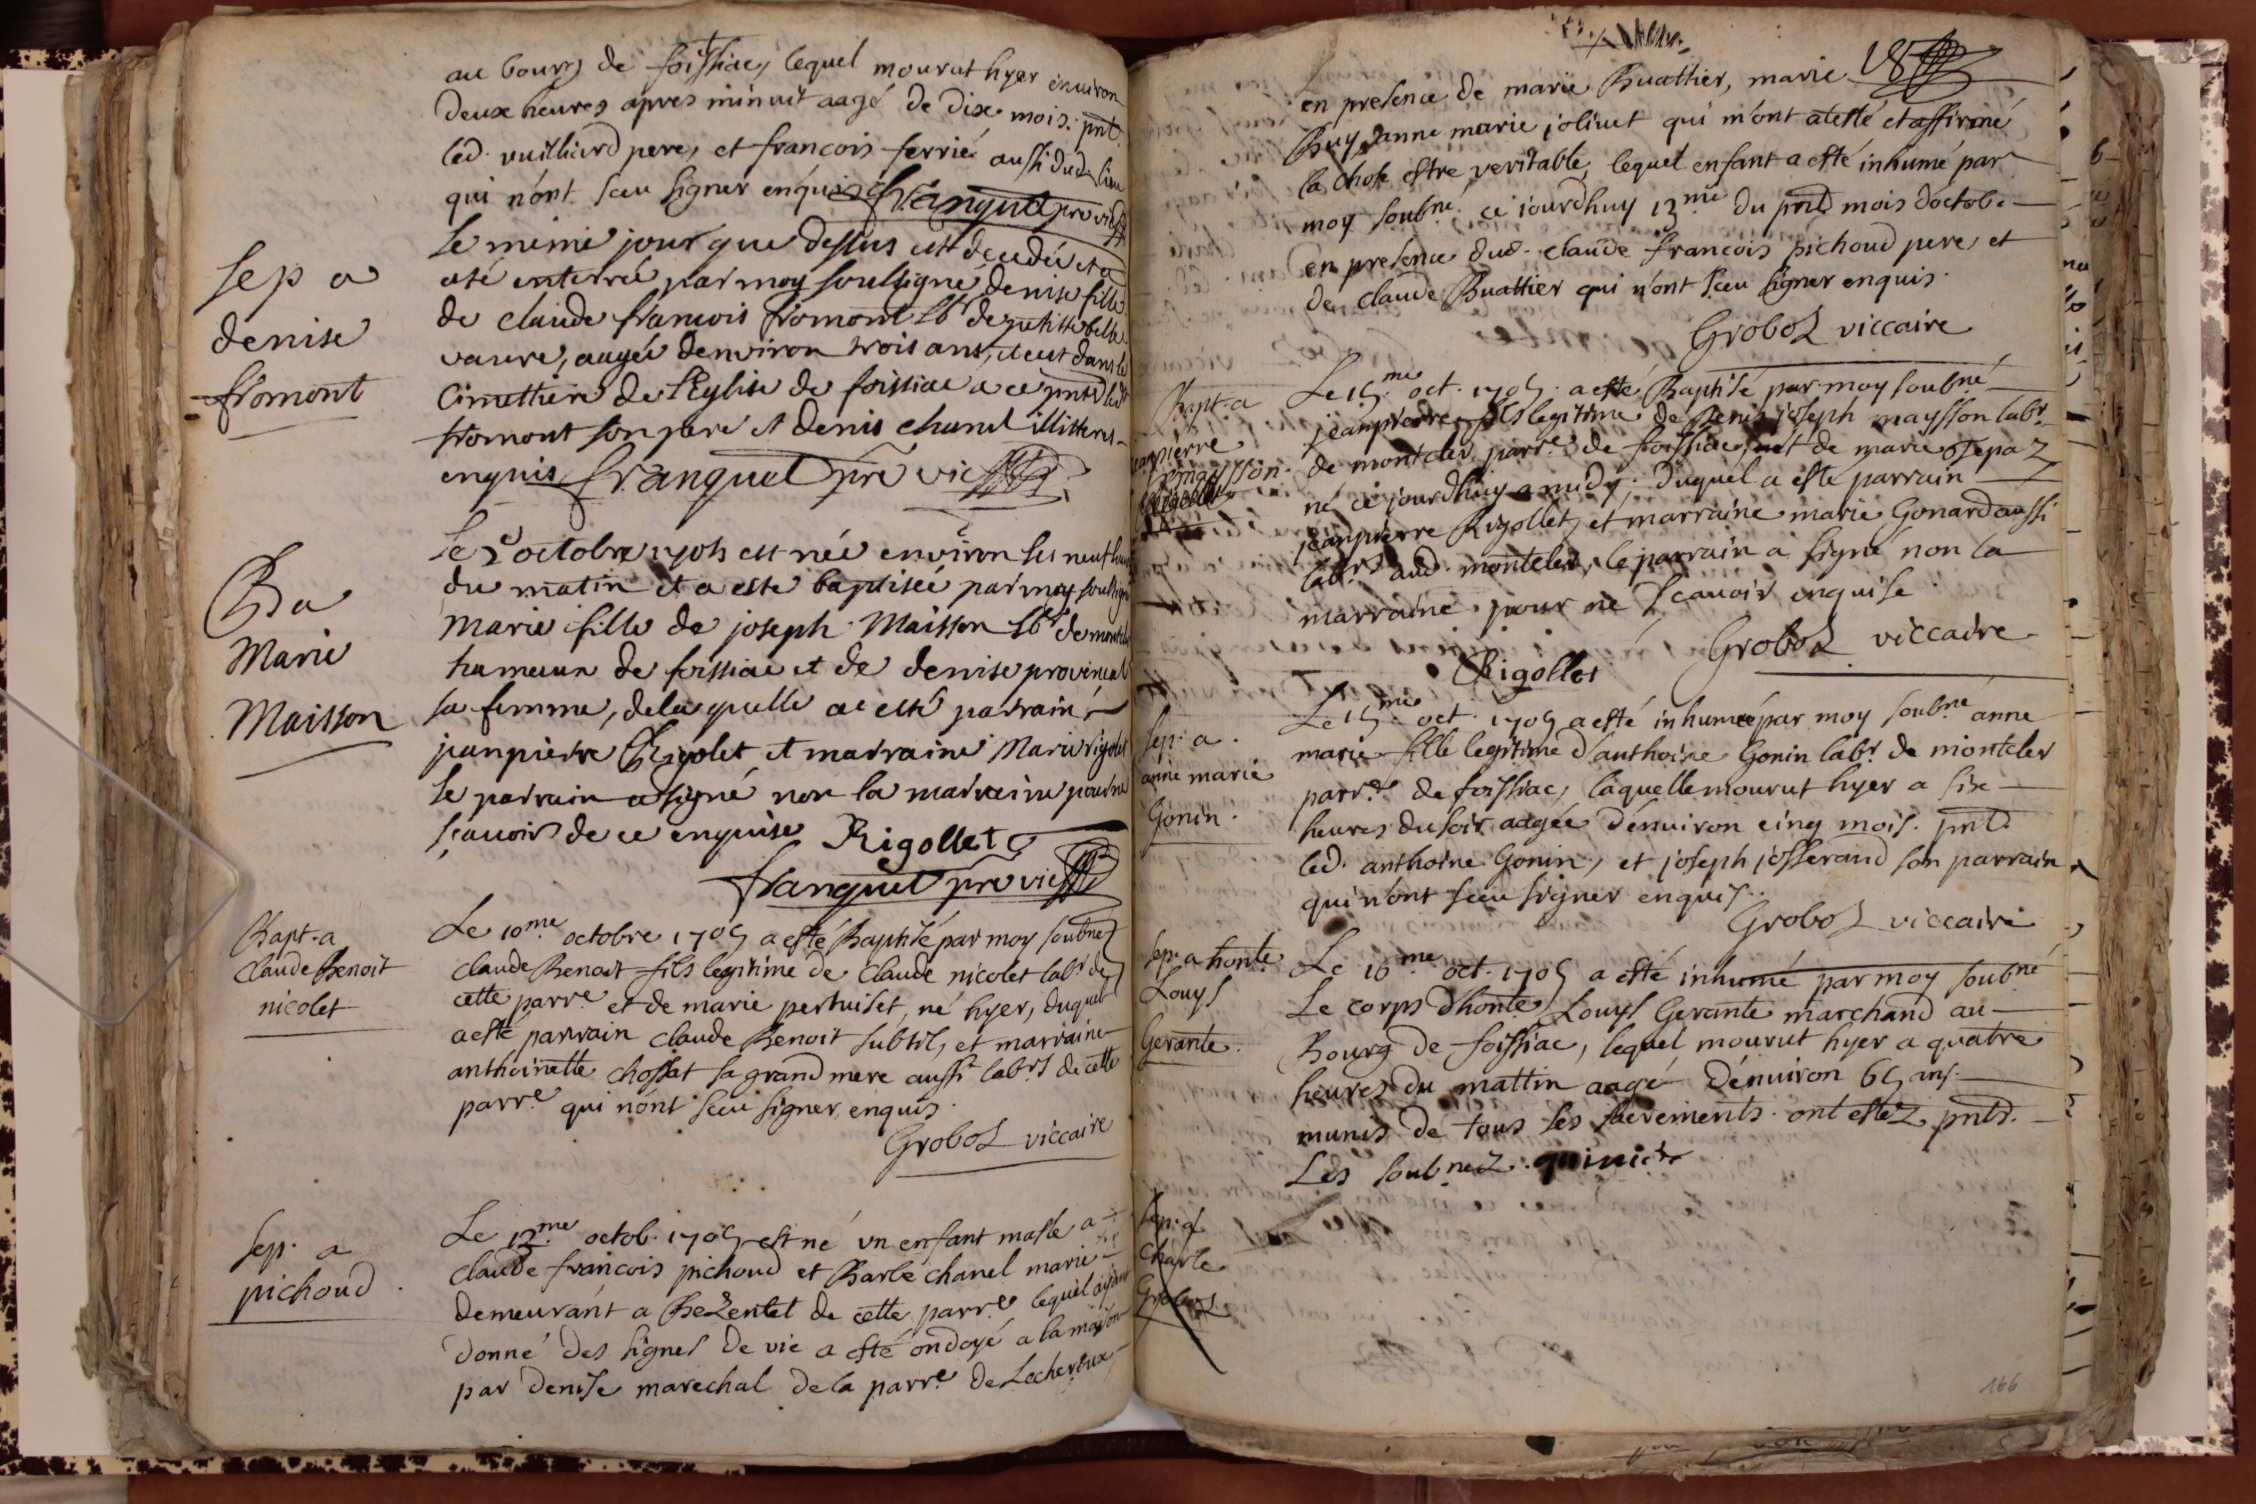 au bourg de foissiac, lequel mourut hyer enuiron
deux heures apres minuit aagé de dix mois. pnt
led. vuilliard pere, et francois ferrié aussi dud. lieu
qui n'ont sceu signer enquis franquet pre vic
Sep a
denise
fromont
le meme jour que dessus est decedée et a
été enterrée par moy soussigné denise fille
de claude francois fromont lbr de petitte belle
vavre, augée denviron trois ans, et est dans le
cimettiere de l'Eglise de foissiac a ce pnts led
fromont son pere et denis chanel illitteres
enquis franquet pre vic
B a
Marie
Maisson
le 5e octobre 1705 est née environ les neuf heures
du matin et a esté baptisée par moy soussigné
Marie fille de joseph Maisson lbr de monteler
hameaux de foissiac et de denise provincal
sa femme, de la quelle a esté parrain
jeanpierre Rigolet et marraine Marie rigolet
le parrain a signé non la marraine pour ne
sçavoir de ce enquise Rigollet
franquet pre vic
Bapt. a
claude Benoit
nicolet
Le 10.me octobre 1705 a esté Baptisé par moy soubné
claude Benoit fils legitime de claude nicolet labr de
cette parr.e et de marie pertuiset, né hyer, duquel
a esté parrain claude Benoit subtil, et marraine
anthoinette chossat sa grand mere aussi labrs de cette
parr.e qui n'ont sceu signer enquis.
Groboz viccaire
Sep. a
pichoud
Le 12.me octob. 1705 est né vn enfant masle a
claude francois pichoud et Barbe chanel marié
demeurant a Bezentet de cette parr.e lequel ayant
donné des signes de vie a esté ondoyé a la maison
par denise marechal de la parr.e de Lecheroux
en presence de marie Buattier, marie
Buy, anne marie joliuet qui m'ont atesté et affirmé
la chose estre veritable, lequel enfant a esté inhumé par
moy soubné. ce jourdhuy 13.me du pnt mois doctob.
en presence dud. claude francois pichoud pere, et
de claude Buattier qui n'ont sceu signer enquis.
Groboz viccaire
Bapt. a
jeanpierre
maysson.
Le 15.me oct. 1705. a esté Baptisé par moy soubné
jeanpierre fils legitime de Benoit joseph maysson labr.
de monteler parr.e de foissiac, et de marie
né ce jourdhuy a midy. duquel a esté parrain
jeanpierre Rigollet, et marraine marie Gonard aussi
labrs aud. monteler, le parrain a signé non la
marraine pour ne sçcauoir enquise.
Groboz viccaire
Rigollet
Sep. a.
anne marie
Gonin.
Le 15.me oct. 1705 a esté inhumée par moy soubné anne
marie fille legitime d'anthoine Gonin labr. de monteler
parr.e de foissiac, laquelle mourut hyer a six
heures du soir aagée d'enuiron cinq mois. pnts
led. anthoine Gonin, et joseph josserand son parrain
qui n'ont sceu signer enquis.
Groboz viccaire
Sep. a honte
Louys
Gerante.
Le 16.me oct. 1705 a esté inhumé par moy soubné
Le corps d'honte Louys Gerante marchand au
Bourg de foissiac, lequel mourut hyer a quatre
heures du mattin aagé d'enuiron 65 ans.
munis de tous les sacrements. ont estez pnts.
Les soubnez.
Sep. a
charle
Groboz
166